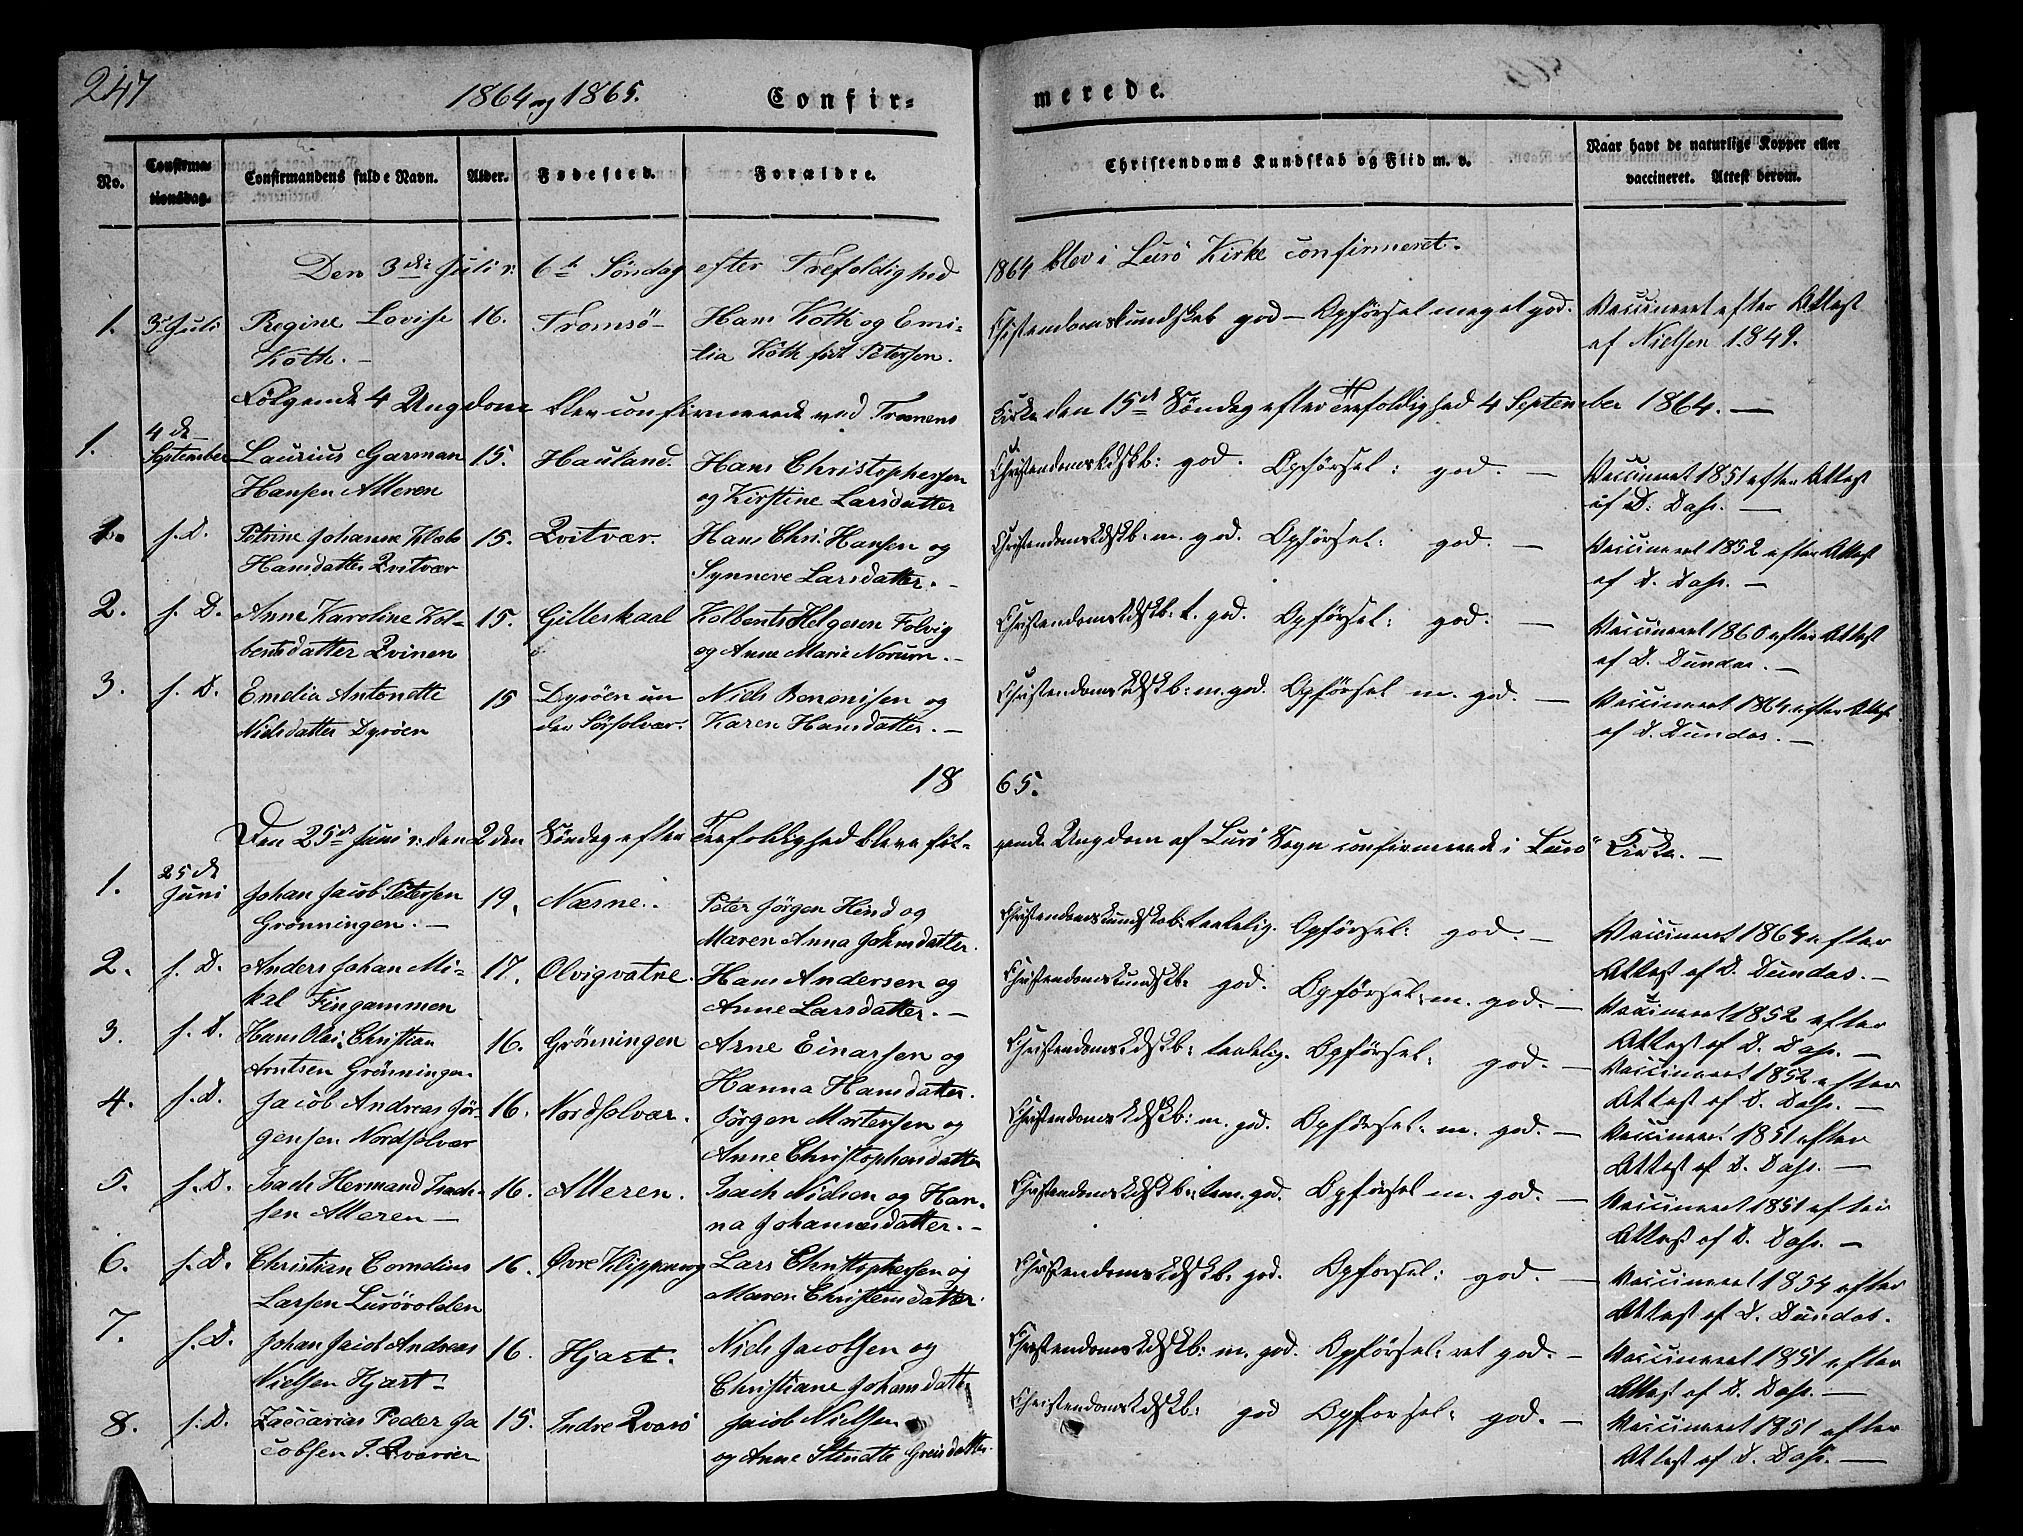 247
1864 og 1865.
Confir-
merede.
No.
Confirma-
tionsdag.
Confirmandens fulde Navn.
Alder.
Fødested.
Forældre.
Christendoms Kundskab og Flid m. v.
Naar havt de naturlige Kopper eller
vaccineret. Attest derom.
Den 3die Juli : 6te Söndag efter Trefoldighed 1864 blev i Lurö Kirke confirmeret.
1. 3 Juli Regine Lovise 16. Tromsö Hans Koth og Emi- Christendomskundskab god – Opförsel meget god. Vaccineret efter Attest
Koth. – lia Koth föd Petersen. af Nielsen 1849.
Fölgende 4 Ungdom blev confirmerede ved Trænens Kirke den 15de Söndag efter Trefoldighed 4 September 1864. –
1. 4de September Laurius Garman 15. Hauland. Hans Christophersen Christendomskdskb: god. Opförsel: god. – Vaccineret 1851 efter Attest
Hansen Alteren og Kirstine Larsdatter af D: Dass. –
1. s. D. Petrine Johanne 15. Qvitvær. Hans Chr. Hansen og Christendomskdskb: m. god. Opförsel: god. – Vaccineret 1852 efter Attest
Hansdatter Qvitvær Synneve Larsdatter. – af D. Dass. –
2. s. D. Anne Karoline Kol- 15. Gilleskaal Kolbent Helgesen Folvig Christendomskdskb: t. god. Opförsel: god. – Vaccineret 1860 efter Attest
bentsdatter Qvinen og Anne Marie Norum. – af D. Dundas. –
3. s. D. Emelia Antonette 15 Dyröen un Niels Bononisen og Christendomskdskb: m. god. Opförsel m. god. – Vaccineret 1864 efter Attest
Nielsdatter Dyröen der Sörsolvær. Karen Hansdatter. – af D. Dundas. –
18 65.
Den 25de Juni : den 2den Söndag efter Trefoldighed bleve föl- gende Ungdom af Lurö Sogn confirmerede i Lurö Kirke. –
1. 25de Juni Johan Jacob Petersen 19. Næsne. Peter Jörgen Hind og Christendomskundskab: taalelig. Opförsel: god. – Vaccineret 1864 efter
Grönningen. – Maren Anna Johnsdatter. Attest af D. Dundas. –
2. s. D. Anders Johan Mi- 17. Olvigvatne. Hans Andersen og Christendomskundskb: god. Opförsel: m. god. – Vaccineret 1852 efter
kal Fingammen Anne Larsdatter. – Attest af D. Dass. –
3. s. D. Hans Olai Christian 16. Grönningen Arne Einarsen og Christendomskdskb: taalelig. Opförsel: god. – Vaccineret 1852 efter
Arntsen Grönningen. Hanna Hansdatter. Attest af D. Dass. –
4. s. D. Jacob Andreas Jör- 16. Nordsolvær. Jörgen Mortensen og Christendomskdskb: m. god. Opförsel: m. god. – Vaccineret 1851 efter
gensen Nordsolvær Anne Christophersdatter Attest af D. Dass. –
5. s. D. Isach Hermand Isach- 16. Alteren. Isach Nielsen og Han- Christendomskdskb: tem. god. Opförsel m. god. – Vaccineret 1851 efter
sen Alteren – na Johannesdatter. – Attest af D. Dass. –
6. s. D. Christian Cornelius 16. Øvre Klippen Lars Christophersen og Christendomskdskb. god. Opförsel: god. – Vaccineret 1854 efter
Larsen Lurövolden Maren Christensdatter Attest af D. Dundas.
7. s. D. Johan Jacob Andreas 16. Hjart. Niels Jacobsen og Christendomskdskb: m. god. Opförsel: ret god. – Vaccineret 1851 efter
Nielsen Hjart – Christiane Johansdatter Attest af D. Dass. –
8. s. D. Zaccarias Peder Ja 15. Indre Qvarö Jacob Nielsen Christendomskdskb: god Opförsel: god. – Vaccineret 1851 efter
cobsen I. Qvaröen og Anne Attest af D. Dass. –